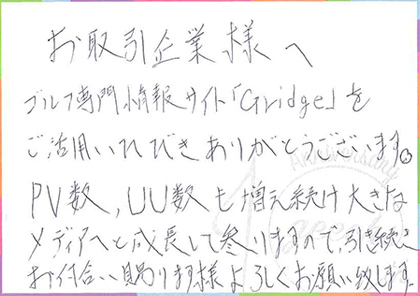 お取引企業様へ
ゴルフ専門情報サイト「Gridge」を
ご活用いただきありがとうございます。
PV数、UU数も増え続け大きな
メディアへと成長して参りますので、引き続き
お付合い賜ります様よろしくお願い致します。
Anniversary